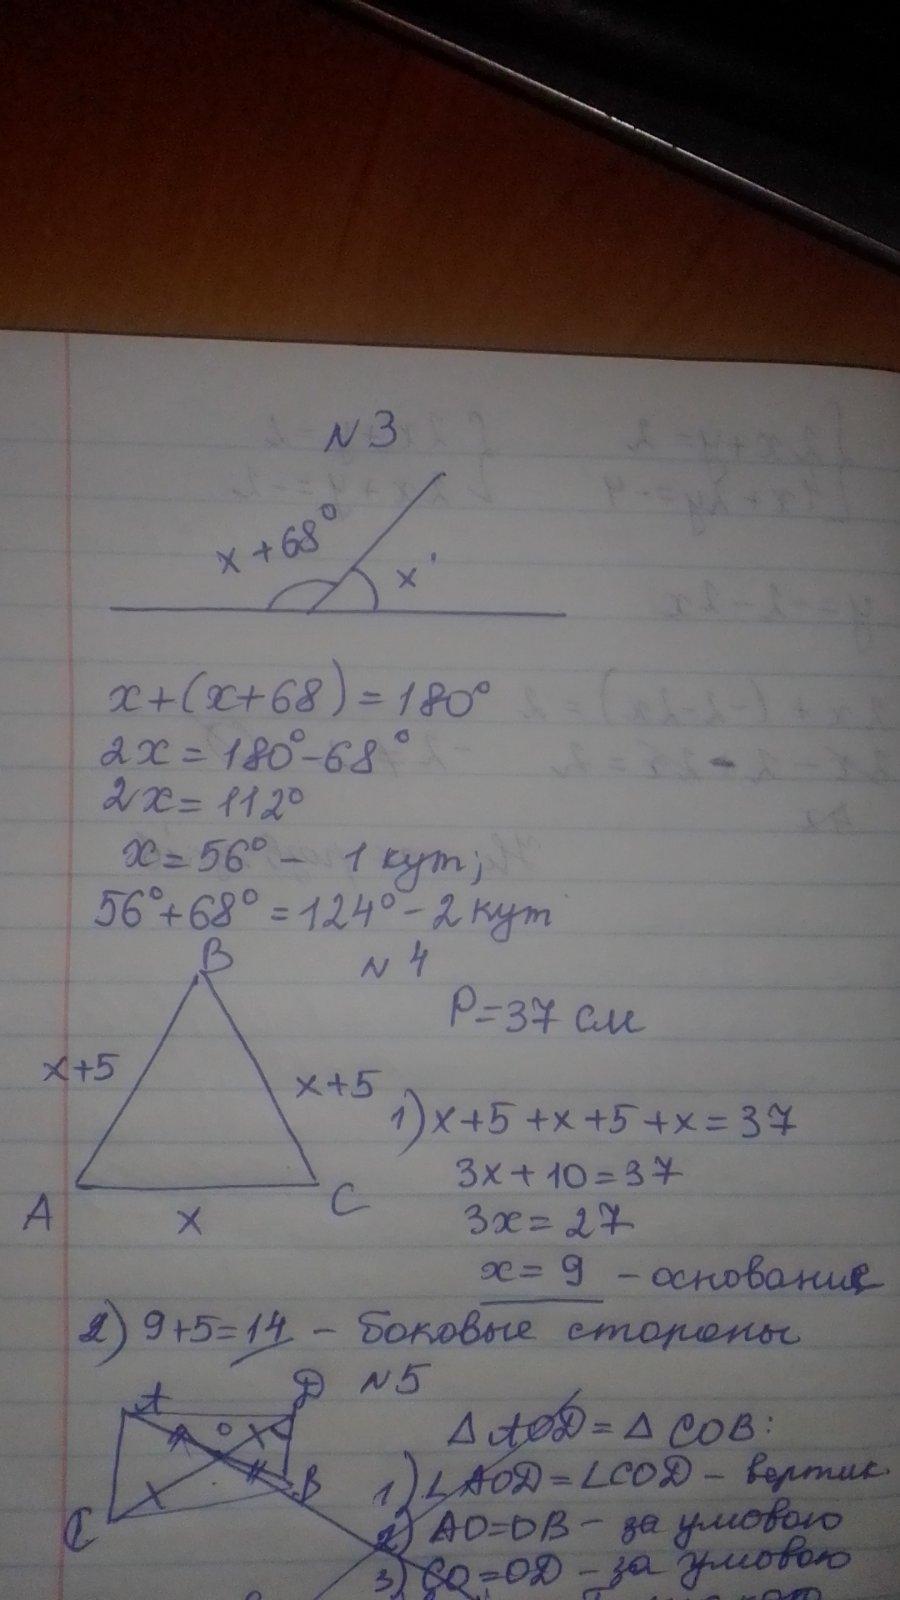 N3
x+68°
x
x+(x+68)=180°
2x=180°-68°
2x=112°
x=56° - 1 кут;
56°+68°=124° - 2 кут
N4
B
P=37 см
x+5
x+5
1) x+5+x+5+x=37
3x+10=37
A
C
x
3x=27
x=9 - основание
2) 9+5=14 - боковые стороны
N5
A
D
O
B
C
Δ AOD = Δ COB:
1) ∠AOD=∠COD - вертик
2) AO=OB - за умовою
3) CO=OD - за умовою